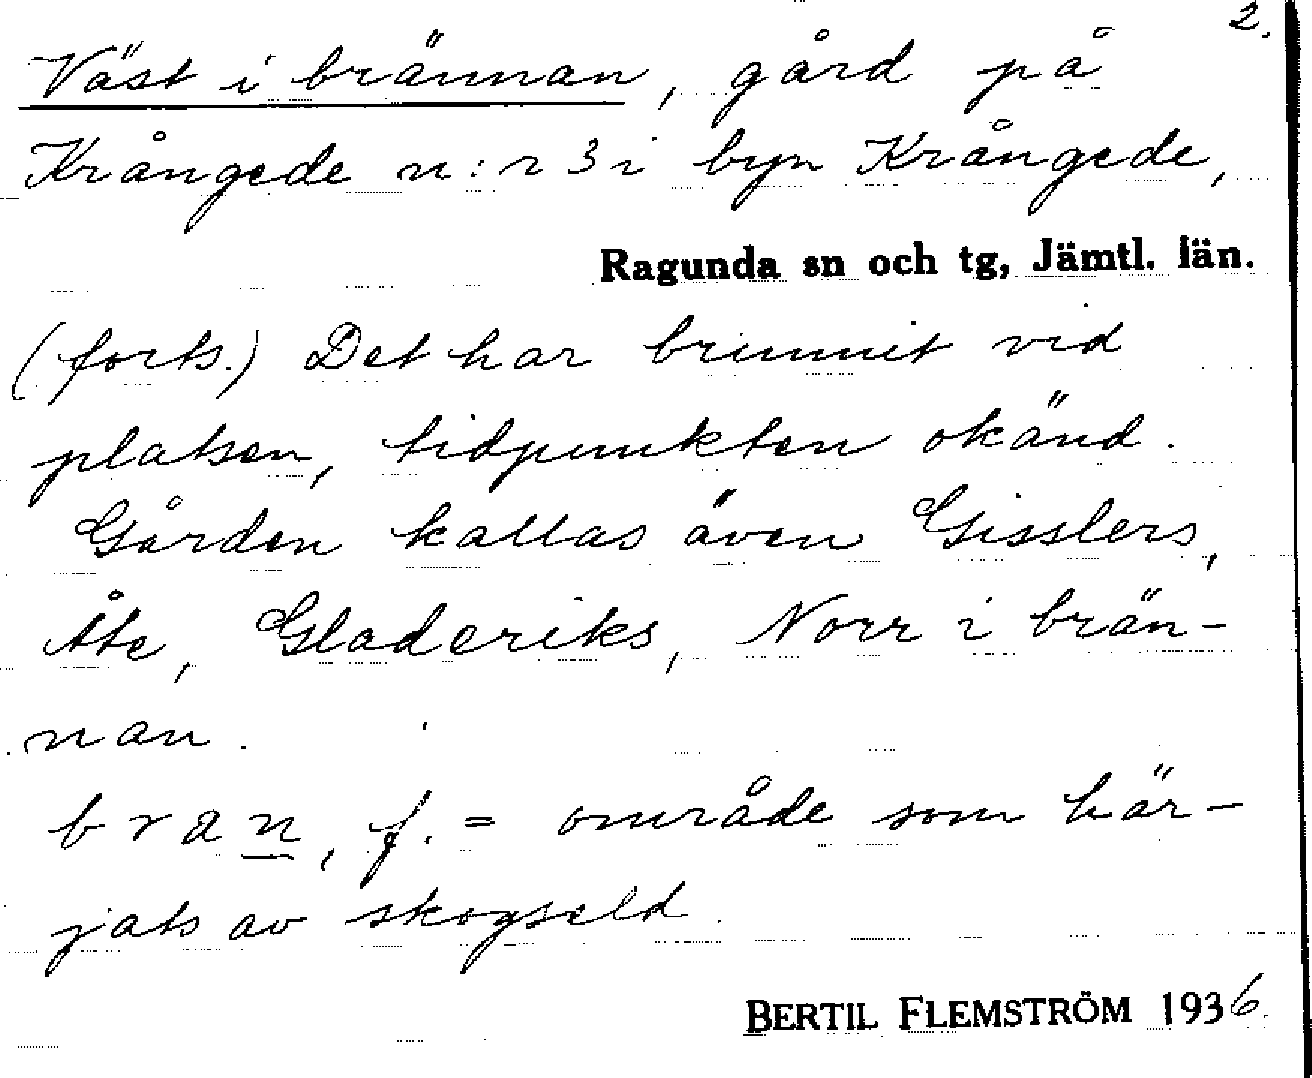 2.
Väst i brännan, gård på
Krångede n:r 3 i byn Krångede,
Ragunda sn och tg, Jämtl. län.
(forts.) Det har brunnit vid
platsen, tidpunkten okänd.
Gården kallas även Gisslers,
Åte, Gladeriks, Norr i brän-
nan.
bran, f. = område som här-
jats av skogseld.
BERTIL FLEMSTRÖM 1936.